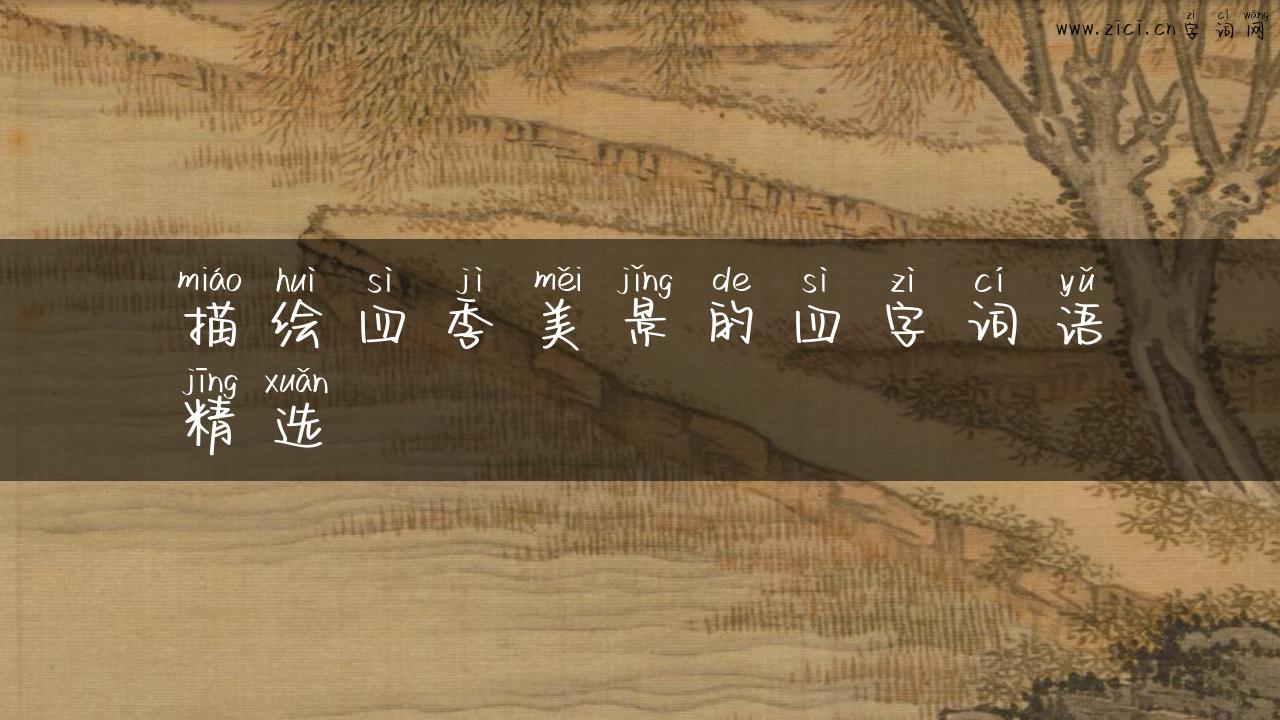 zì cí wǎng
www.zici.cn字词网
miáo huì sì jì měi jǐng de sì zì cí yǔ
描绘四季美景的四字词语
jīng xuǎn
精选